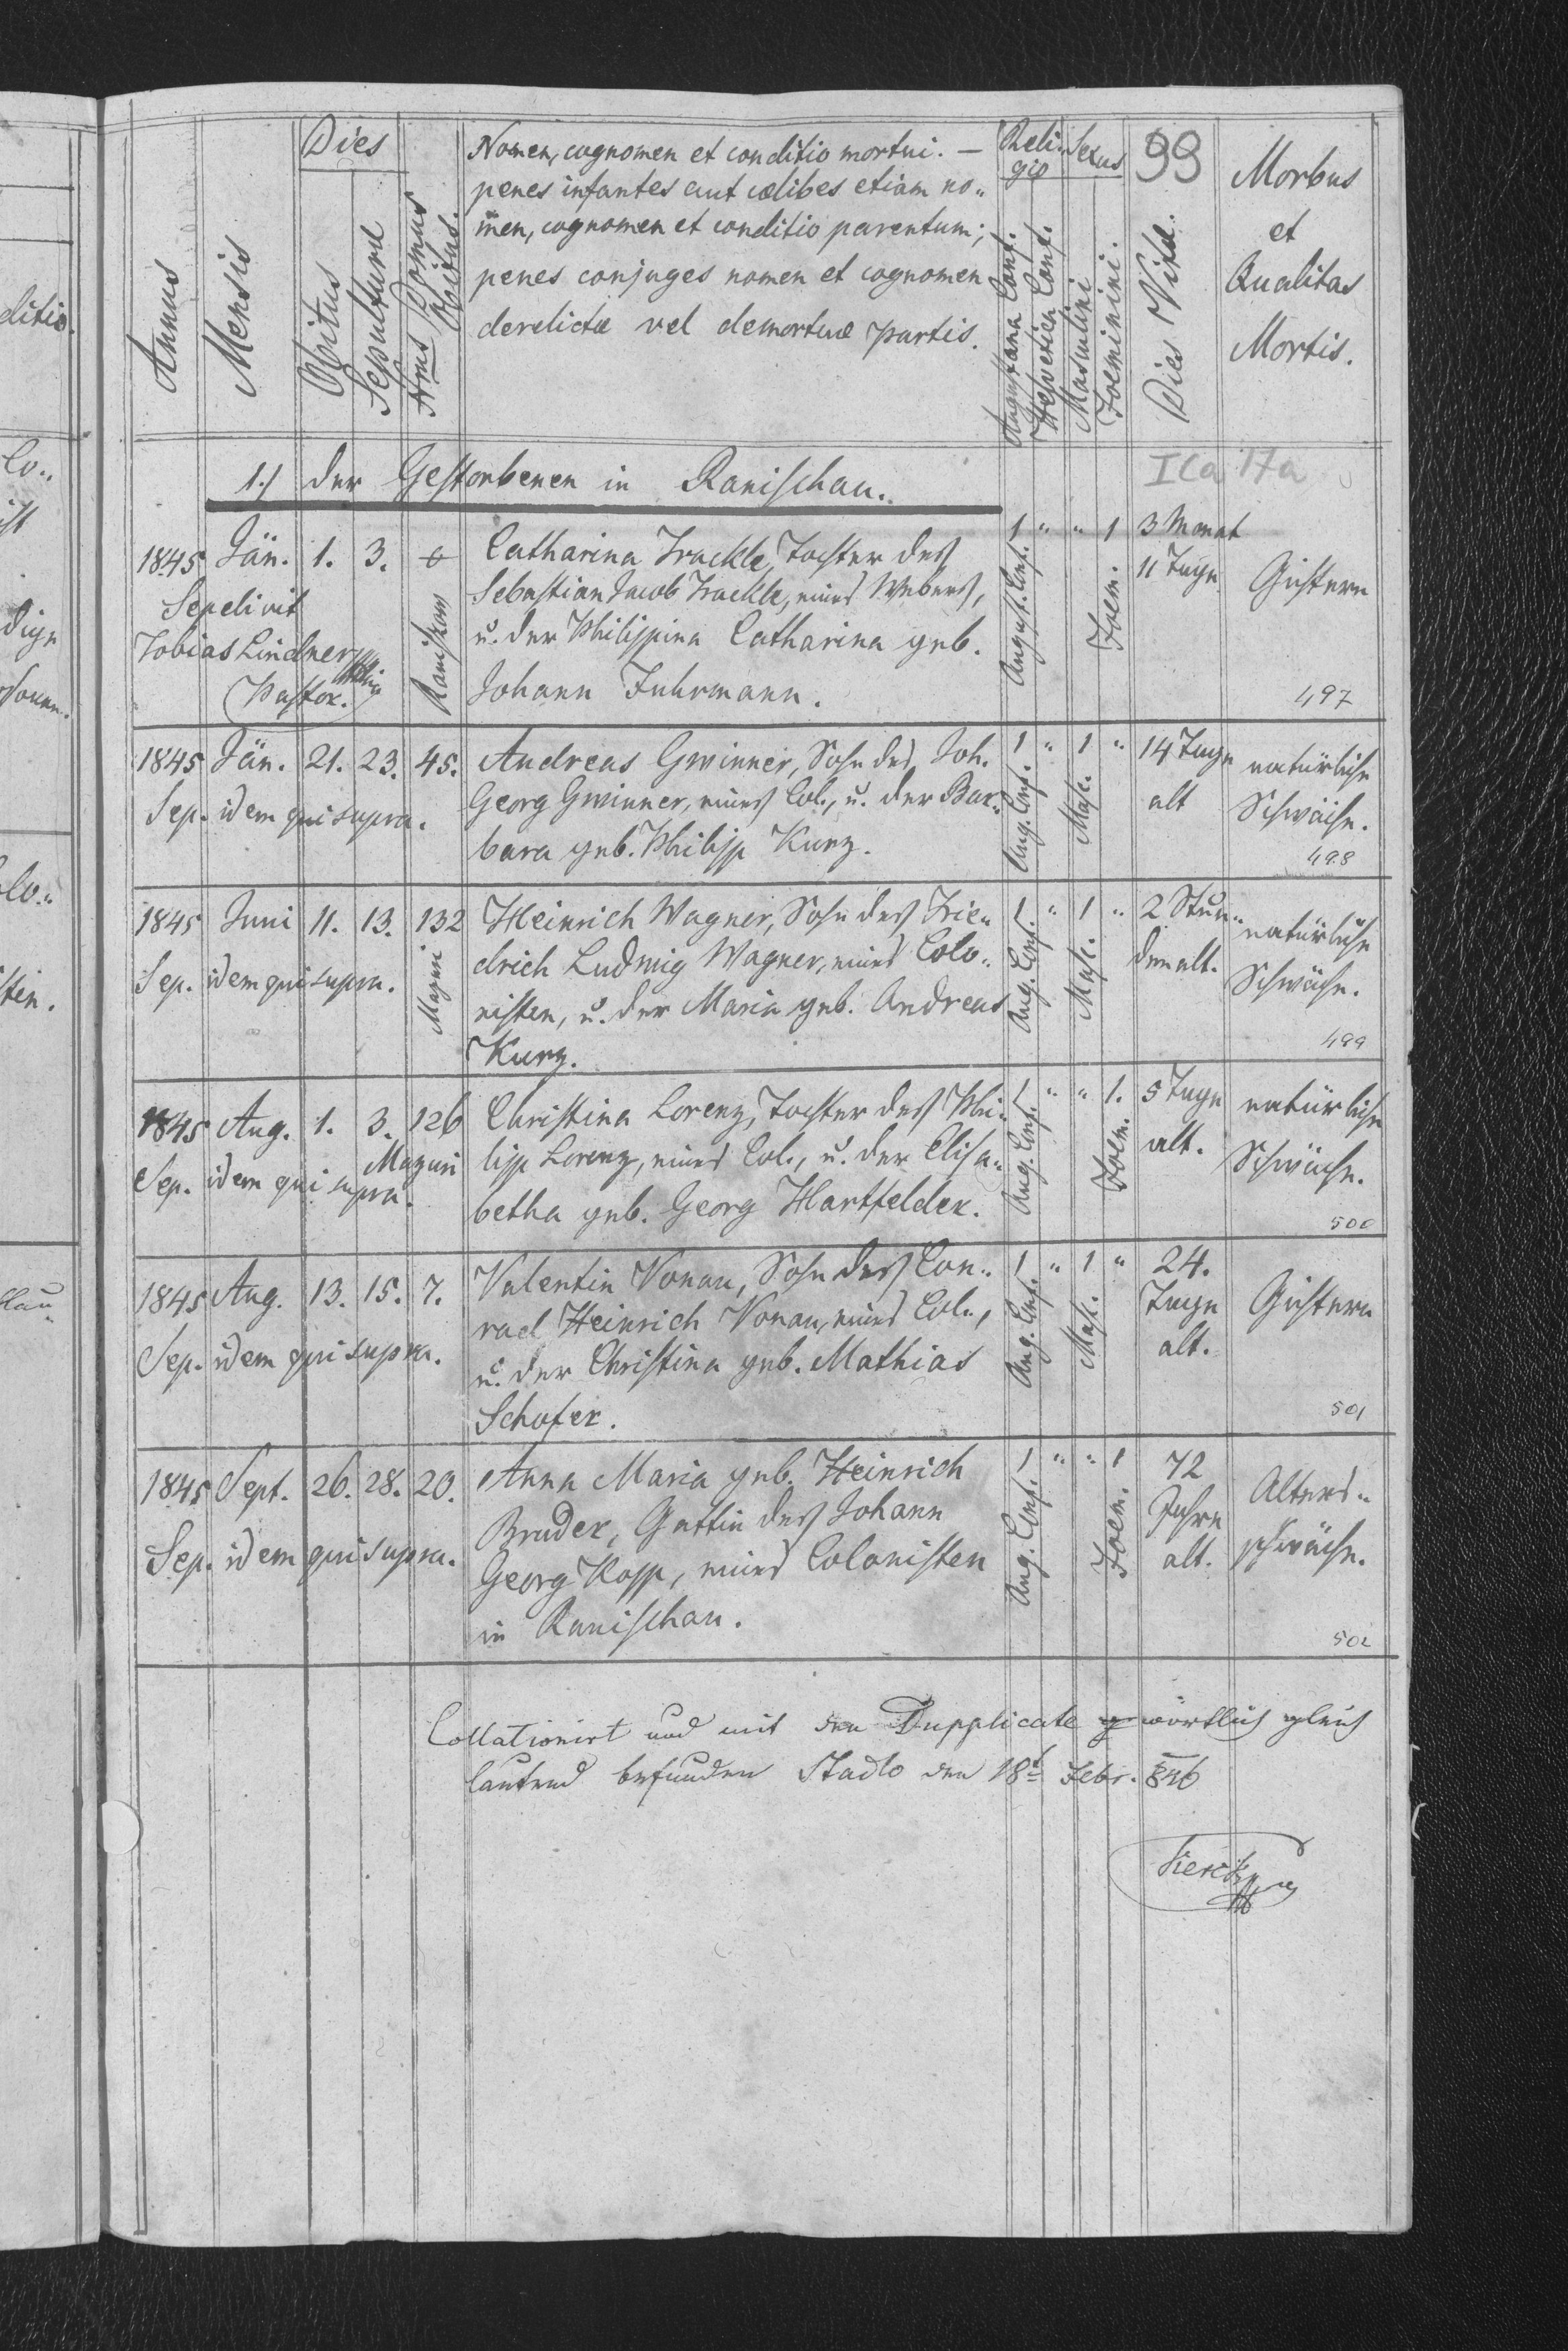 Annus
Mensis
Dies
Obitus
Sepulturæ
Nrus Domus Obitus.
Nomen, cognomen et conditio mortui. —
penes infantes aut cœlibes etiam no„
men, cognomen et conditio parentum;
penes conjuges nomen et cognomen
derelictæ vel demortuæ partis.
Reli„
gio
Augustana Conf.
Helvetica Conf.
Sexus
Masculini
Foeminini.
99
Dies Vitæ.
Morbus
et
Qualitas
Mortis.
1.) der Gestorbenen in Ranischau.
ICa 17a
1845 Jän. 1. 3.
Sepelivit
Tobias Lindner
Pastor.
Ranischau
Catharina Frackle, Tochter deß
Sebastian Jacob Frackle, eines Webers,
u. der Philippina Catharina geb.
Johann Fuhrmann.
1 „ „ 1
August. Conf.
Foem.
3 Monat
11 Tage
Gichtern
497
1845 Jän. 21. 23. 45.
Sep. idem qui supra.
Andreas Gwinner, Sohn des Joh.
Georg Gwinner, eines Col., u. der Bar„
bara geb. Philipp Kurz.
1 „ 1 „
Aug. Conf.
Mask.
14 Tage
alt
natürliche
Schwäche.
498
1845 Juni 11. 13. 132
Sep. idem qui supra.
Mazuri
Heinrich Wagner, Sohn deß Frie„
drich Ludwig Wagner, eines Colo„
nisten, u. der Maria geb. Andreas
Kurz.
1 „ 1 „
Aug. Conf.
Mask.
2 Stun„
den alt.
natürliche
Schwäche.
499
1845 Aug. 1. 3. 126
Mazuri
Sep. idem qui supra.
Christina Lorenz, Tochter deß Phi„
lipp Lorenz, eines Col., u. der Elisa„
betha geb. Georg Hartfelder.
1 „ „ 1.
Aug. Conf.
Foem.
5 Tage
alt.
natürliche
Schwäche.
500
1845 Aug. 13. 15. 7.
Sep. idem qui supra.
Valentin Vonau, Sohn deß Con„
rad Heinrich Vonau, eines Col.,
u. der Christina geb. Mathias
Schofer.
1 „ 1 „
Aug. Conf.
Mask.
24.
Tage
alt.
Gichtern
501
1845 Sept. 26. 28. 20.
Sep. idem qui supra.
Anna Maria geb. Heinrich
Bruder, Gattin deß Johann
Georg Kopp, eines Colonisten
in Ranischau.
1 „ „ 1
Aug. Conf.
Foem.
72
Jahre
alt.
Alters„
schwäche.
502
Collationirt und mit den Dupplicate wörtlich gleich
lautend befunden Stadlo den 18t Febr. 846